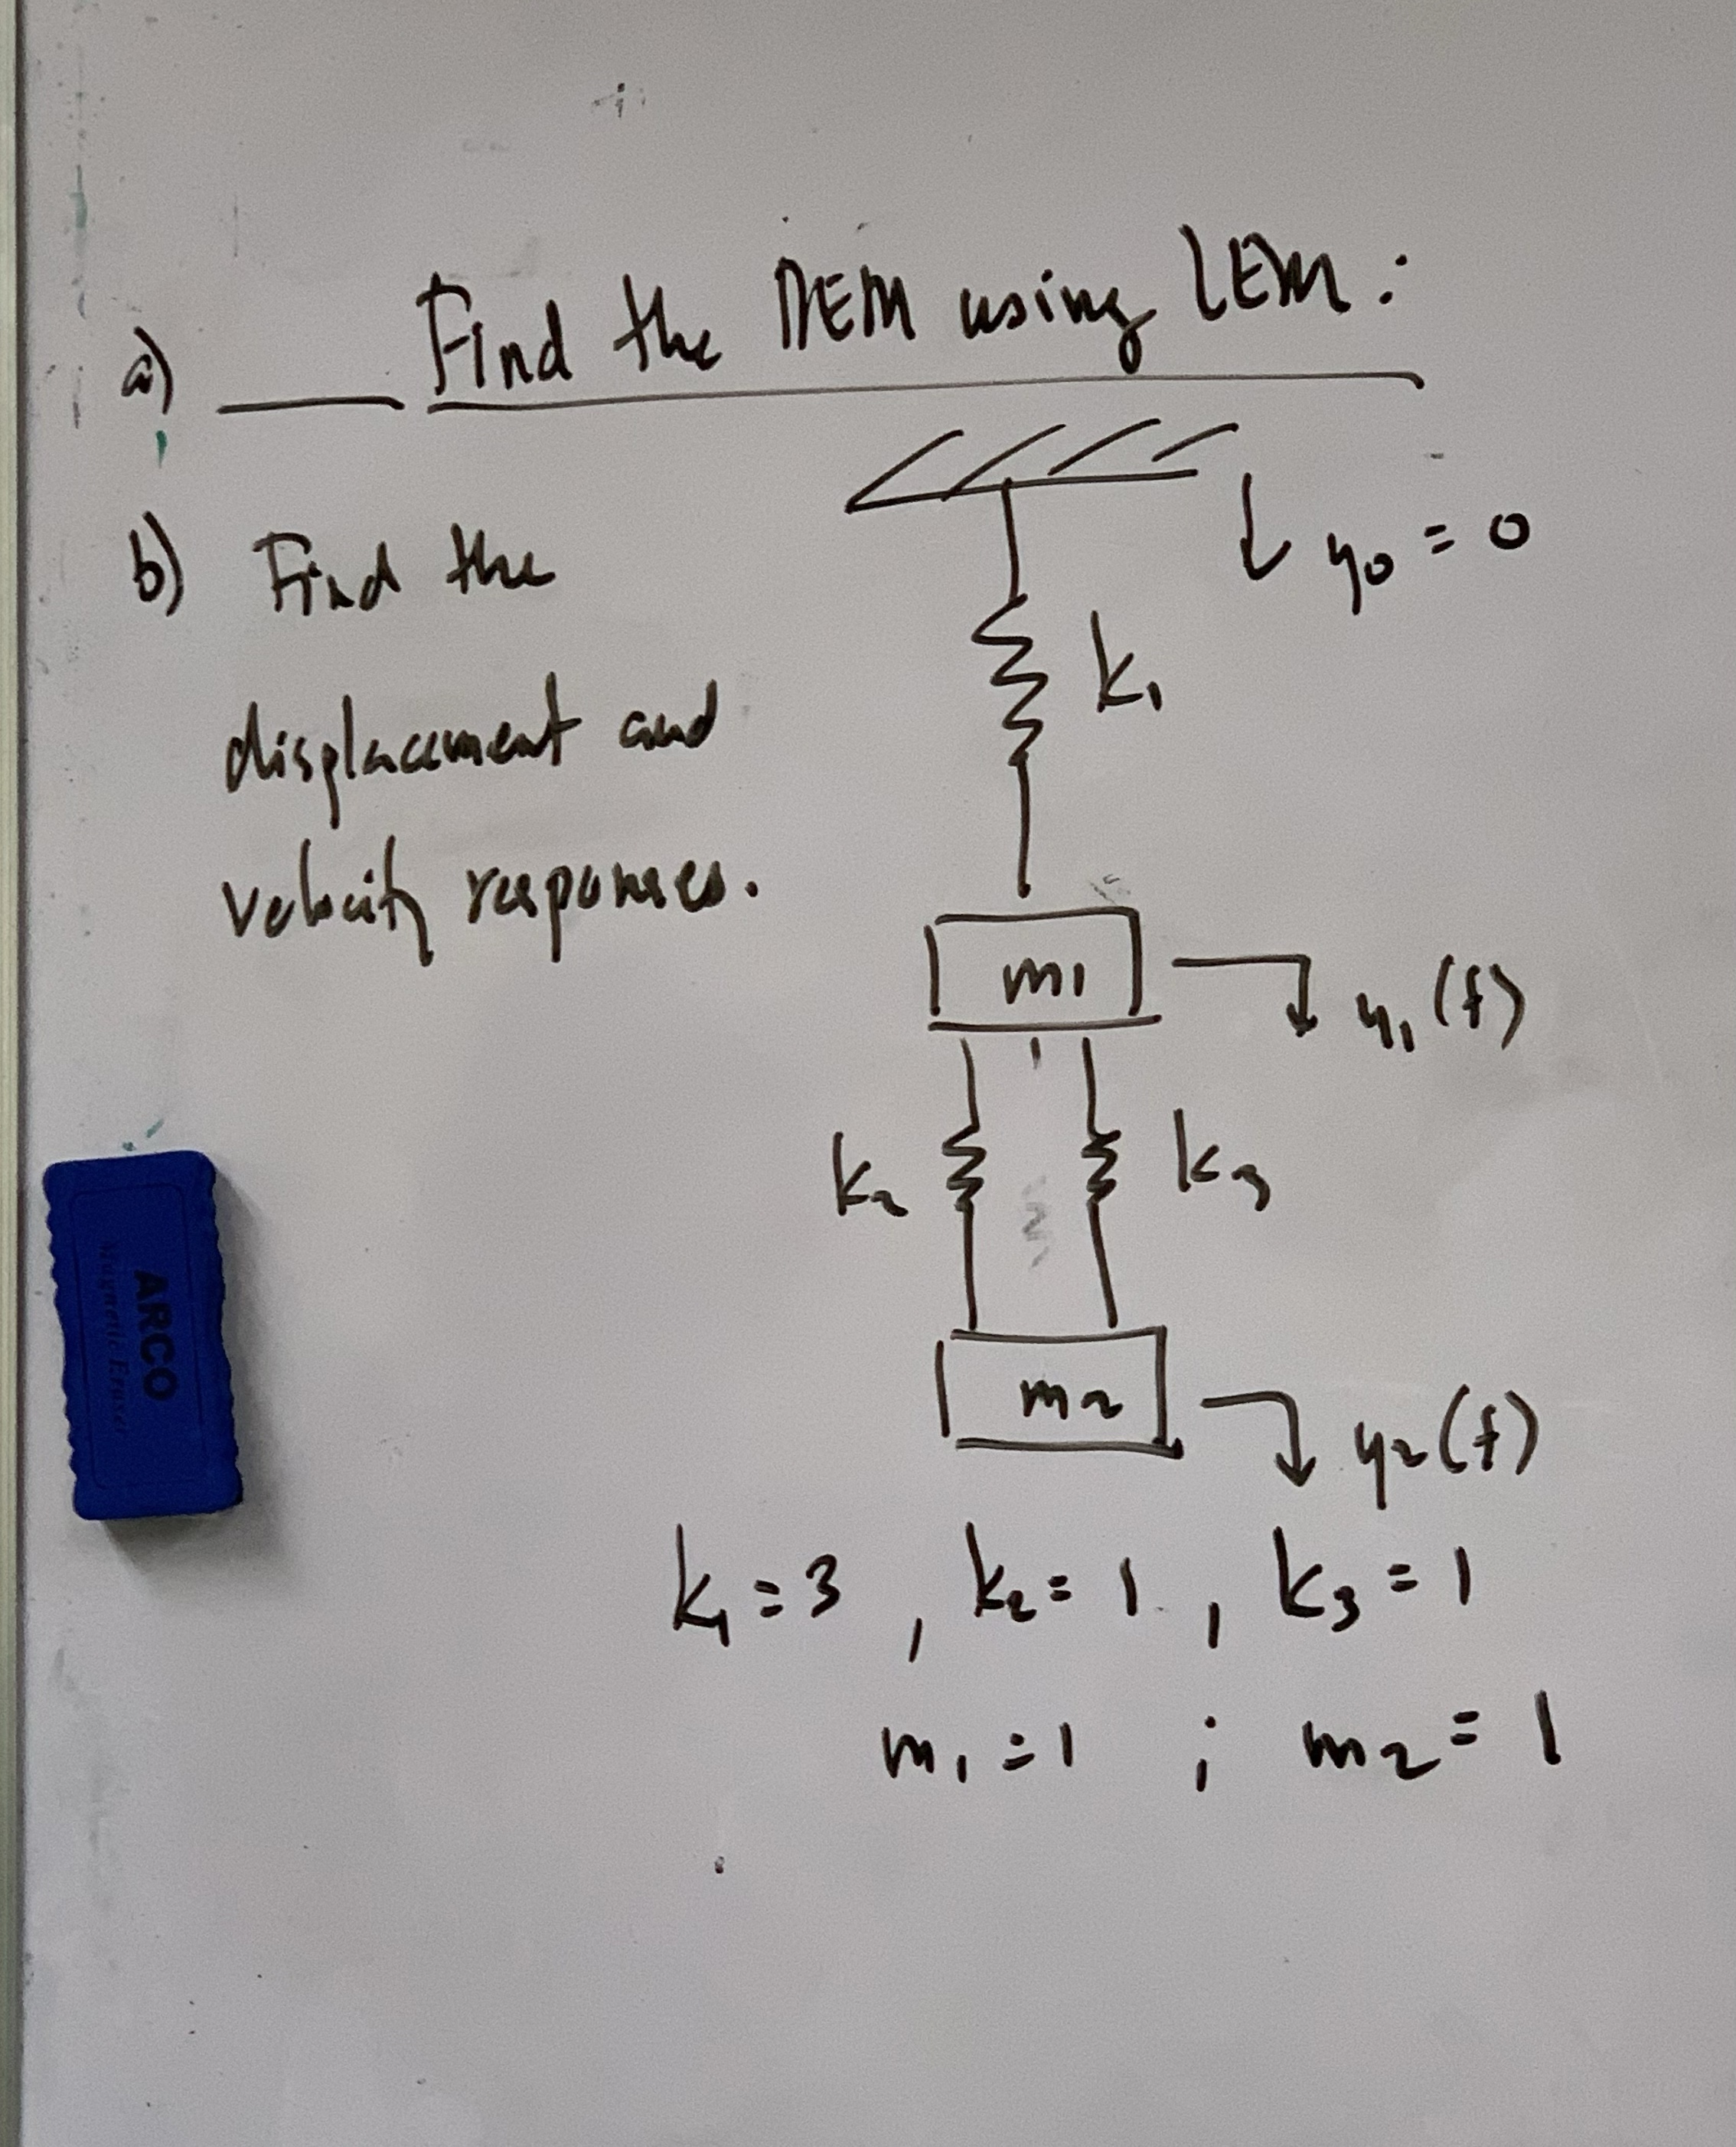 a) Find the DEM using LEM:
y0 = 0
b) Find the
displacement and
velocity responses.
k1
m1
y1(t)
k2
k3
m2
y2(t)
k1 = 3 , k2 = 1 , k3 = 1
m1 = 1 ; m2 = 1
ARCO
Magnetic Eraser